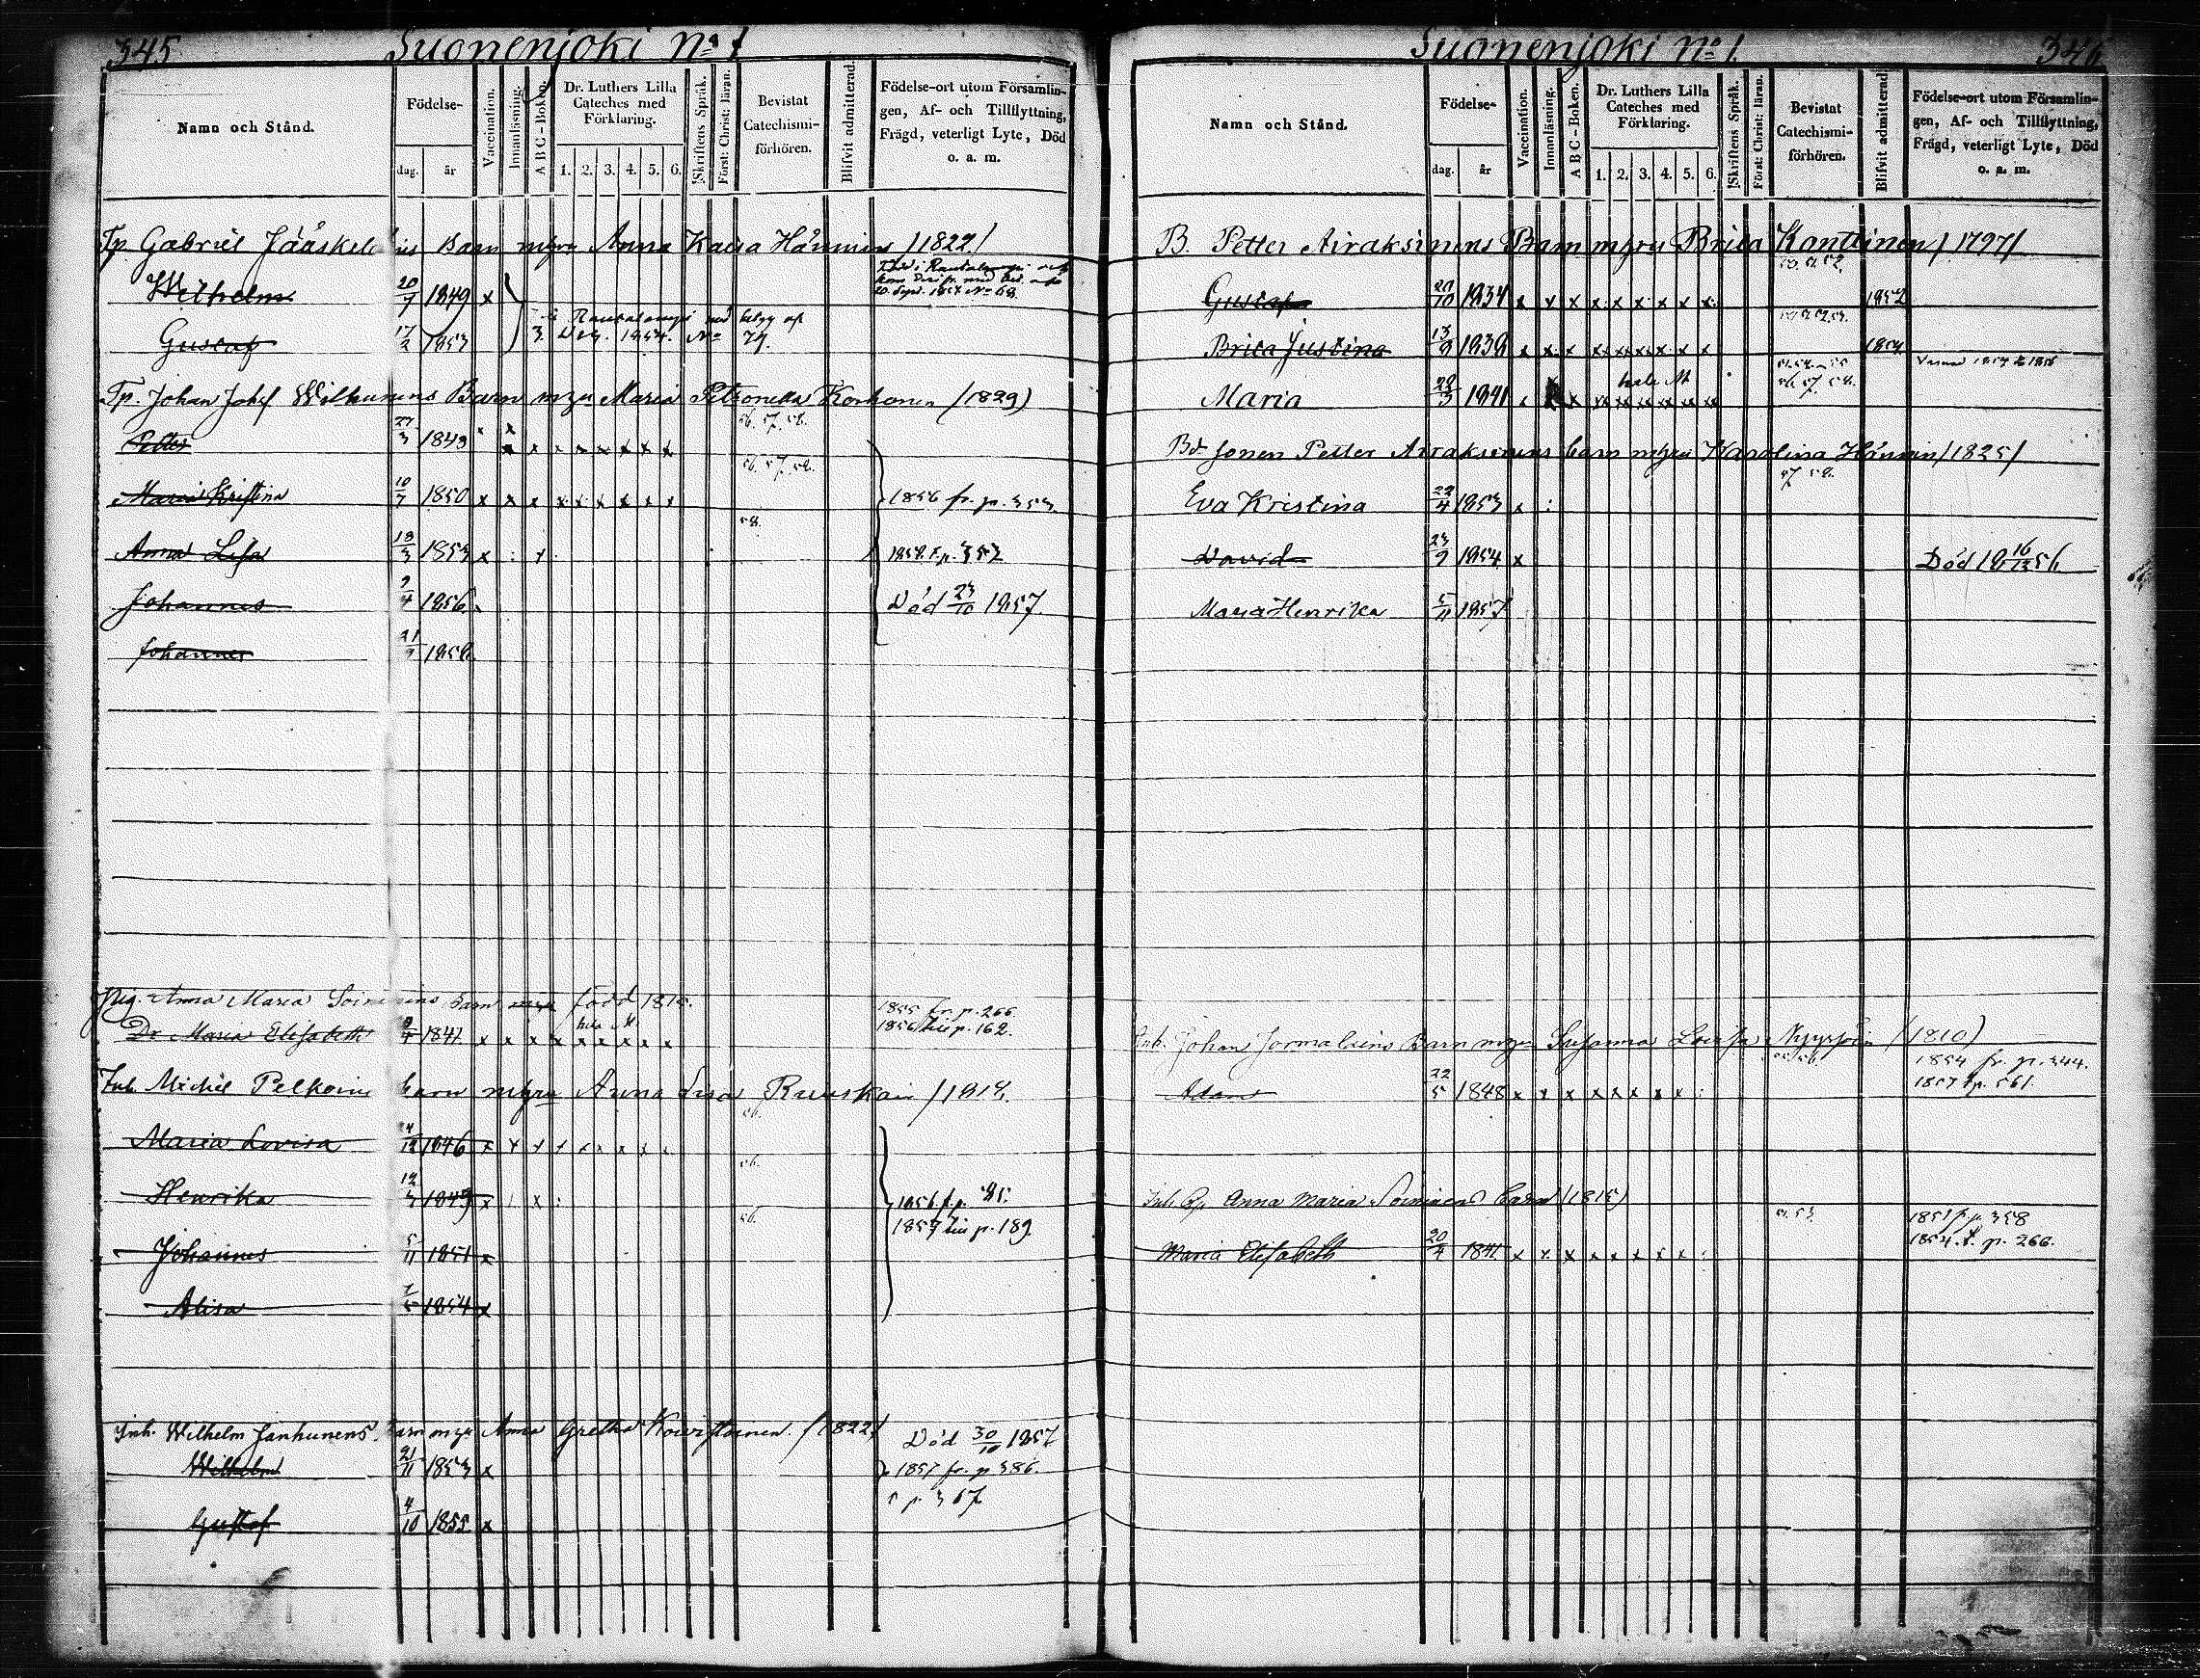 345
Suonenjoki No 1
Namn och Stånd.
Födelse-
dag. år
Vaccination.
Innanläsning.
A B C - Boken.
Dr. Luthers Lilla Cateches med Förklaring.
1. 2. 3. 4. 5. 6.
Skriftens Språk.
Först: Christ: läran.
Bevistat Catechismi-förhören.
Blifvit admitterad.
Födelse-ort utom Församlin-
gen, Af- och Tillflyttning,
Frägd, veterligt Lyte, Död
o. a. m.
Tp. Gabriel Jääskeläinens Barn mgru Anna Kaisa Hänninen /1822/
Wilhelm 20/7 1849 x
20. Sept. 1854 No 68.
Gustaf 17/2 1853
Rautalampi med betyg af
3. 1854. No 79.
Tp. Johan Johs. Wilhunens Barn mgru Maria Petronella Korhonen (1829)
56. 57. 58.
Petter 27/3 1848 x x x x x x x x x
56. 57. 58.
Maria Kristina 10/7 1850 x x x x x x x x x 1856 fr. p. 353
58.
Anna Lisa 18/3 1853 x : x 1858 t. p. 352
Johannes 9/4 1856 Död 23/10 1857
Johannes 21/9 1858
Pig. Anna Maria Soininens barn född 1815.
hela M 1855 fr. p. 266
Dr Maria Elisabeth 1841 x x x x x x x x x 1856 till p. 162.
Inh. Michel Pelkonens barn mhru Anna Lisa Ruuskain /1817.
56.
Maria Lovisa 1846 x x x x x x x x x
56.
Henrika 12/3 1849 x : x : 1856 f. p. 85.
56.
1857 till p. 189
Johannes 5/11 1851 x
Alisa 7/5 1854 x
Inh. Wilhelm Janhunens barn mgr Anna Gretha Koivistoinen (1822) Död 30/10 1857
Wilhelm 21/11 1853 x 1857 fr. p. 386.
p. 367
Gustaf 4/10 1855 x
Suonenjoki No 1.
346
Namn och Stånd.
Födelse-
dag. år
Vaccination.
Innanläsning.
A B C - Boken.
Dr. Luthers Lilla Cateches med Förklaring.
1. 2. 3. 4. 5. 6.
Skriftens Språk.
Först: Christ: läran.
Bevistat Catechismi-förhören.
Blifvit admitterad.
Födelse-ort utom Församlin-
gen, Af- och Tillflyttning,
Frägd, veterligt Lyte, Död
o. a. m.
B. Petter Airaksinens Barn mhru Brita Kanttinen /1797/
Gustaf 20/10 1834 x x x x x x x x x 1852
Brita Justina 13/9 1838 x x x x x x x x x 1854
hela M
56. 57. 58.
Maria 28/3 1841 x x x x x x x x
Bd. Sonen Petter Airaksinens barn mhru Karolina Hännin /1825/
57 58.
Eva Kristina 22/4 1853 x :
David 23/9 1854 x Död 16/12 56
Maria Henrika 5/11 1857
Inh. Johan Jormalains Barn mgru Susanna Lovisa Nyyssöin (1810)
1854 fr. p. 344.
Adam 22/5 1848 x x x x x x x x : 1857 t. p. 561.
Inh. Anna Maria Soininens barn (1815)
1851 fr. p. 358
Maria Elisabeth 20/4 1841 x x x x x x x x : 1854. t. p. 266.